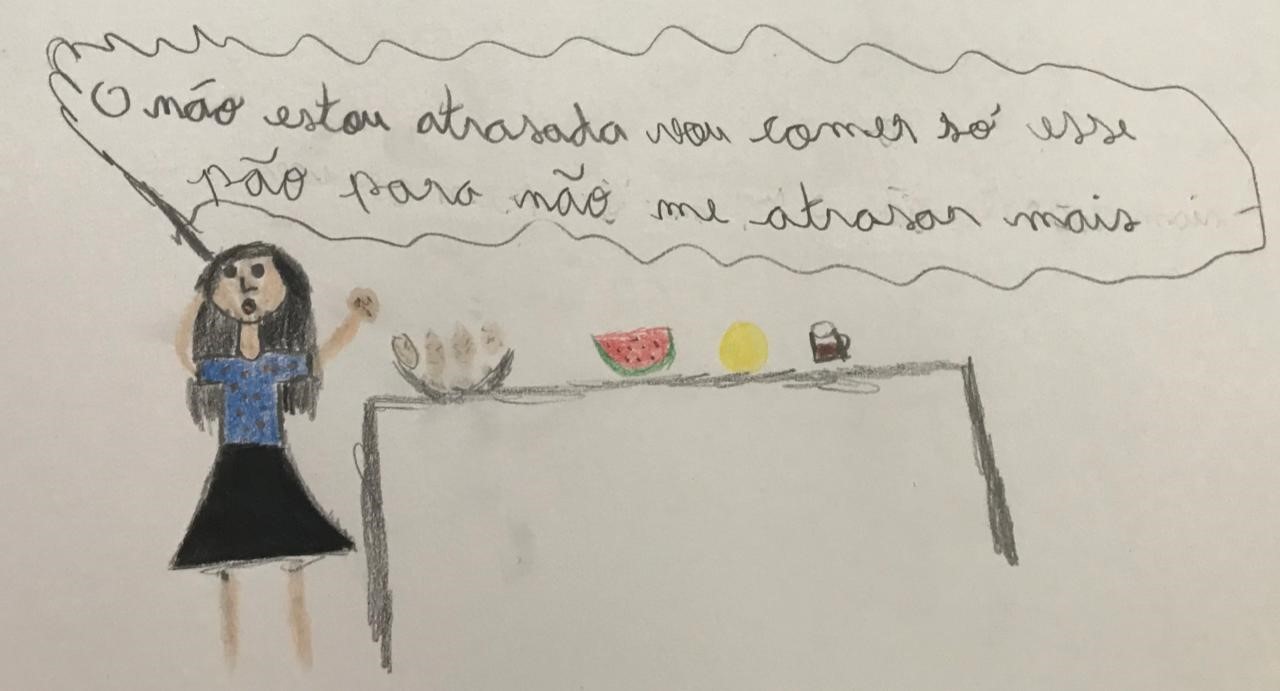 O não estou atrasada vou comer só esse
pão para não me atrasar mais